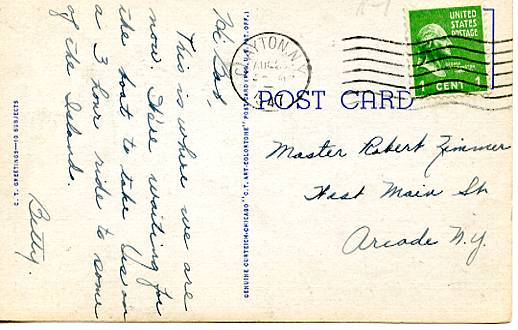 Hi Bob,
This is where we are
now. We're waiting for
the boat to take us on
a 3 hour ride to some
of the Island.
Betty.
C. T. GREETINGS—10 SUBJECTS
GENUINE CURTEICH-CHICAGO "C. T. ART-COLORTONE" POST CARD (REG. U.S. PAT. OFF.)
POST CARD
CLAYTON, N.Y.
AUG
UNITED
STATES
POSTAGE
1 CENT 1
Master Robert Zimmer
West Main St
Arcade N.Y.